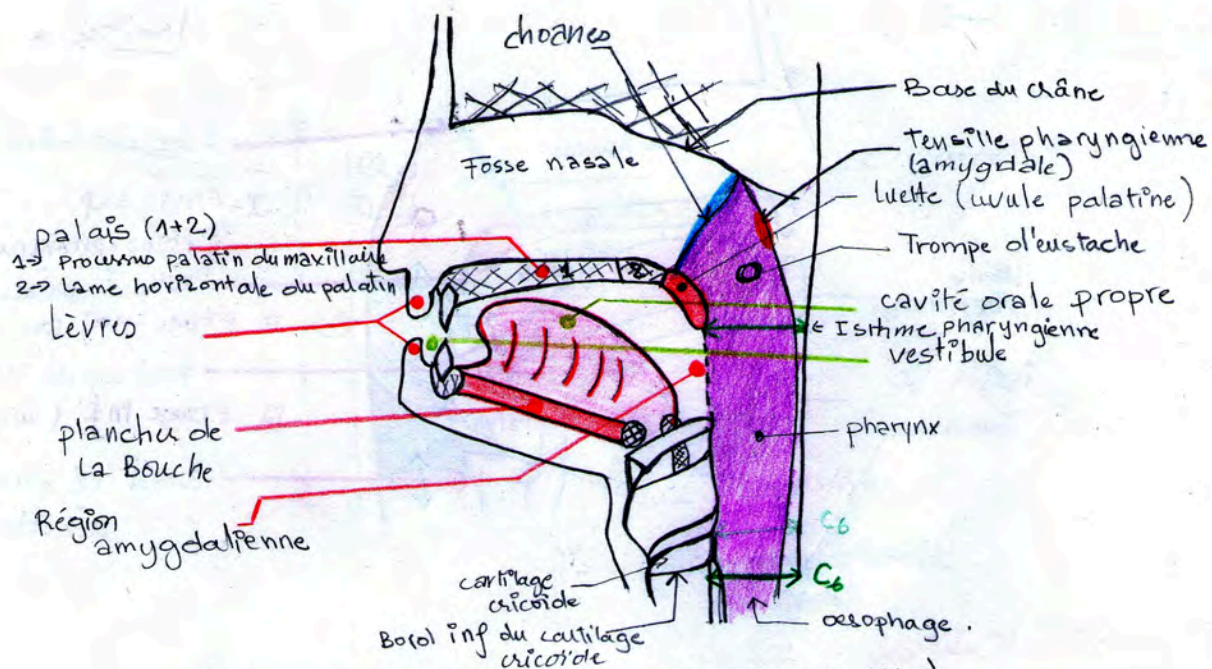 choanes
Base du crâne
Fosse nasale
Tensille pharyngienne
(amygdale)
luette (uvule palatine)
Trompe d'eustache
palais (1+2)
1-> Processus palatin du maxillaire
2-> Lame horizontale du palatin
Lèvres
cavité orale propre
Isthme pharyngienne
vestibule
1
2
plancher de
La Bouche
pharynx
Région
amygdalienne
C6
C6
cartilage
cricoïde
Bord inf du cartilage
cricoïde
œsophage.